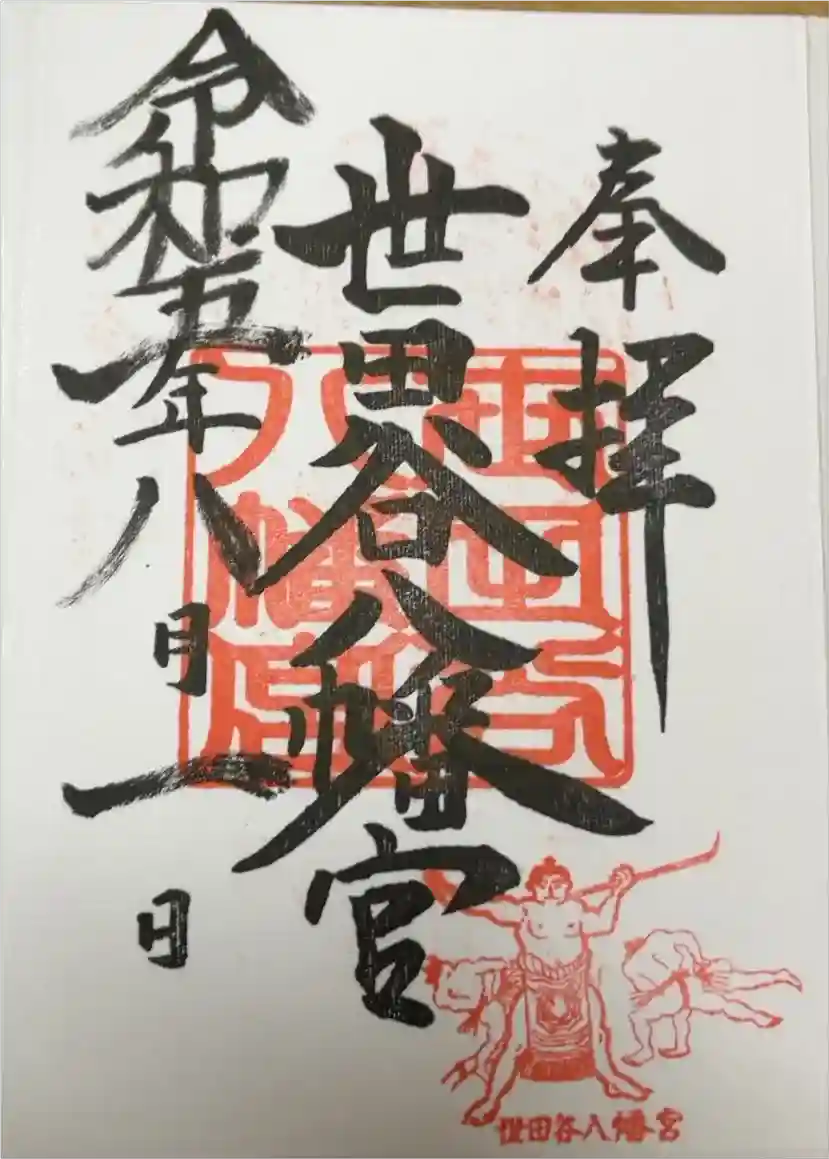 奉拝
世田谷八幡宮
令和五年八月一日
世田谷八幡宮
世田谷八幡宮